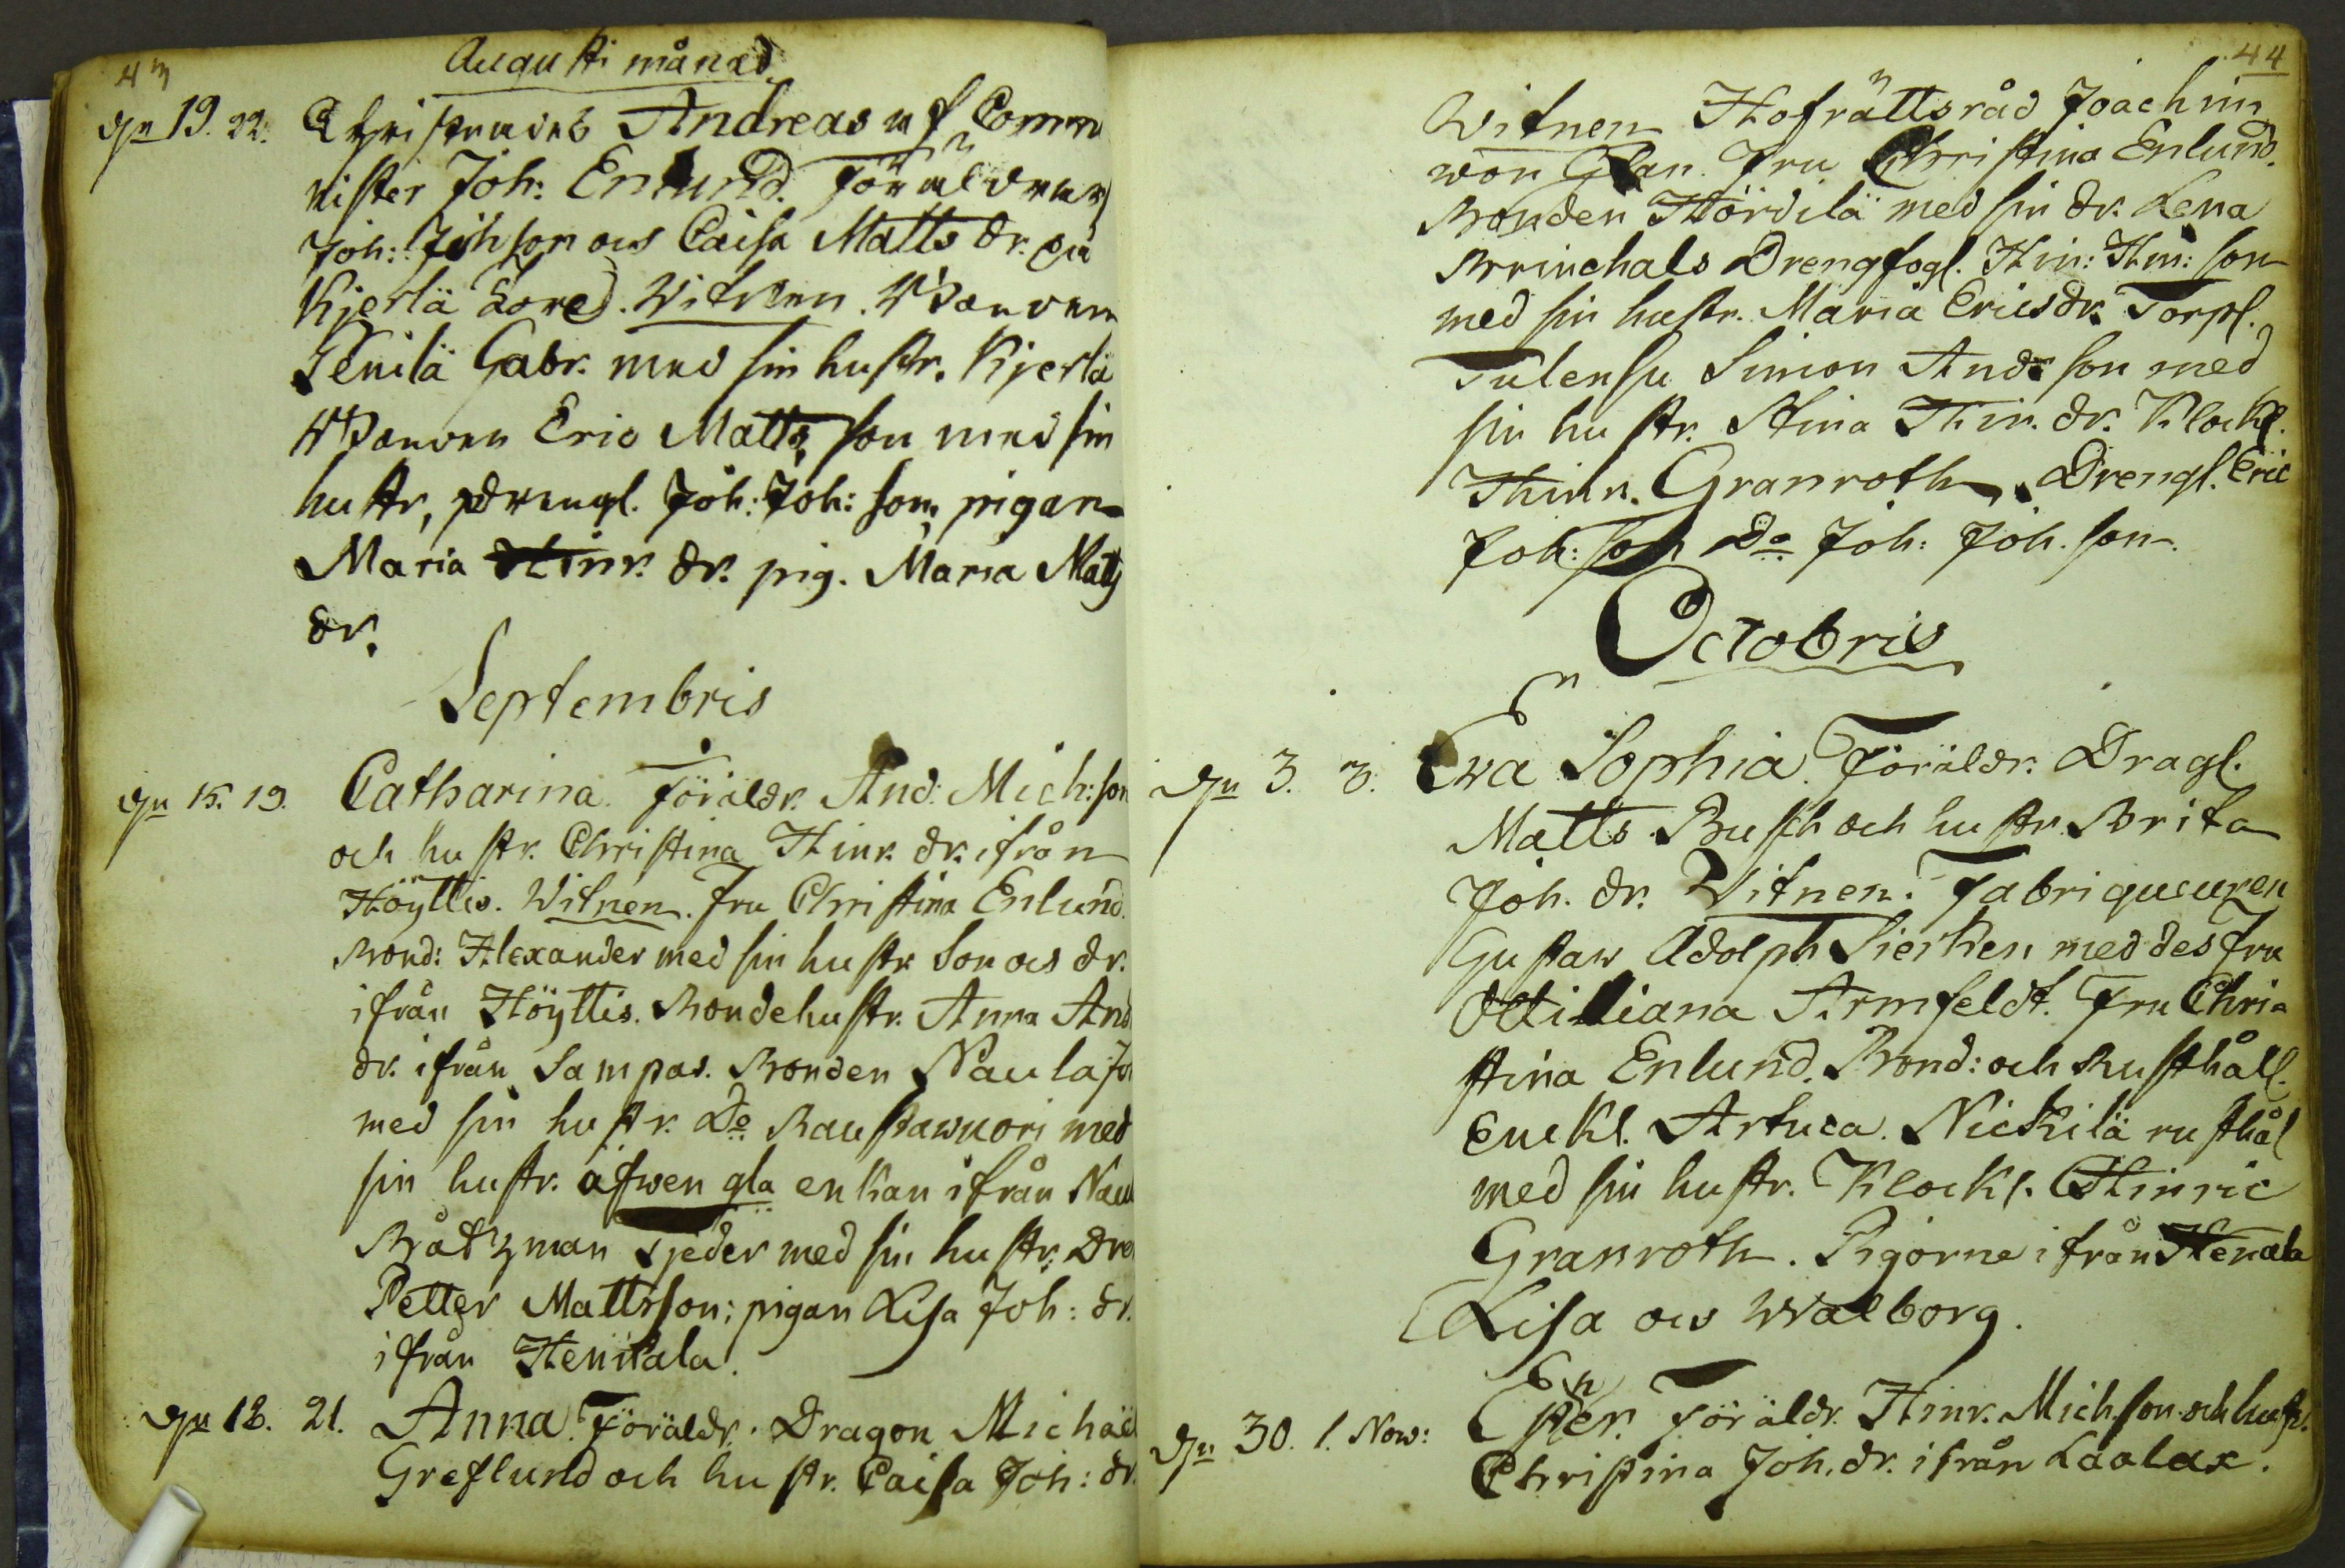 43
Augusti månad
dn 19. 22. Christnades Andreas af Comm
nister Joh: Enlund. Föräldrar
Joh: Johson och Caisa Matts dr. på
Kjerlä Lored. Witnen. Bonden
Tenilä Gabr. med sin hustr. Kjerlä
Bonden Eric Matts son med sin
hustr, Drengl. Joh: Joh: son, pigan
Maria Hinr. dr. pig. Maria Matts
dr.
Septembris
dn 15. 19. Catharina. Föräldr. And: Mich: son
och hustr. Christina Hinr. dr. ifrån
Höyttis. Witnen. Fru Christina Enlund.
Bond: Alexander med sin hustr. Son och dr.
ifrån Höyttis. Bondehustr. Anna And
dr. ifrån Sampas. Bonden Naula Jo
med sin hustr. Do Raustawuori med
sin hustr. äfwen gla enkan ifrån Nau
Båtzman Speder med sin hustr. Dre
Petter Mattsson; pigan Lisa Joh: dr.
ifrån Henitala.
dn 18. 21. Anna. Föräldr. Dragon Michaël
Greflund och hustr. Caisa Joh: dr.
44
Witnen Hofrättsråd Joachim
von Glan. Fru Christina Enlund.
Bonden Hördilä med sin dr. Lena
Brinchals Drengfogl. Hin: Hin: son
med sin hustr. Maria Ericsdr. Torpl.
Tulensu Simon And: son med
sin hustr. Stina Hin. dr. Klockl.
Hinr. Granroth, Drengl. Eric
Joh: son Do Joh: Joh. son.
Octobris
dn 3. 3. Ewa Sophia. Föräldr. Dragl.
Matts Busch och hustr. Brita
Joh. dr. Witnen. Fabriqueuren
Gustaw Adolph Sierken med des fru
Ottiliana Armfeldt. Fru Chri-
stina Enlund. Bond: och Rusthåll.
Enckl. Artuca. Nickilä rusthål
med sin hustr. Klockl. Hinric
Granroth. Pigorna ifrån Henala
Lisa och Walborg.
dn 30. 1. Now: Ester. Föräldr. Hinr. Mich. son och hustr.
Christina Joh. dr. ifrån Laalax.